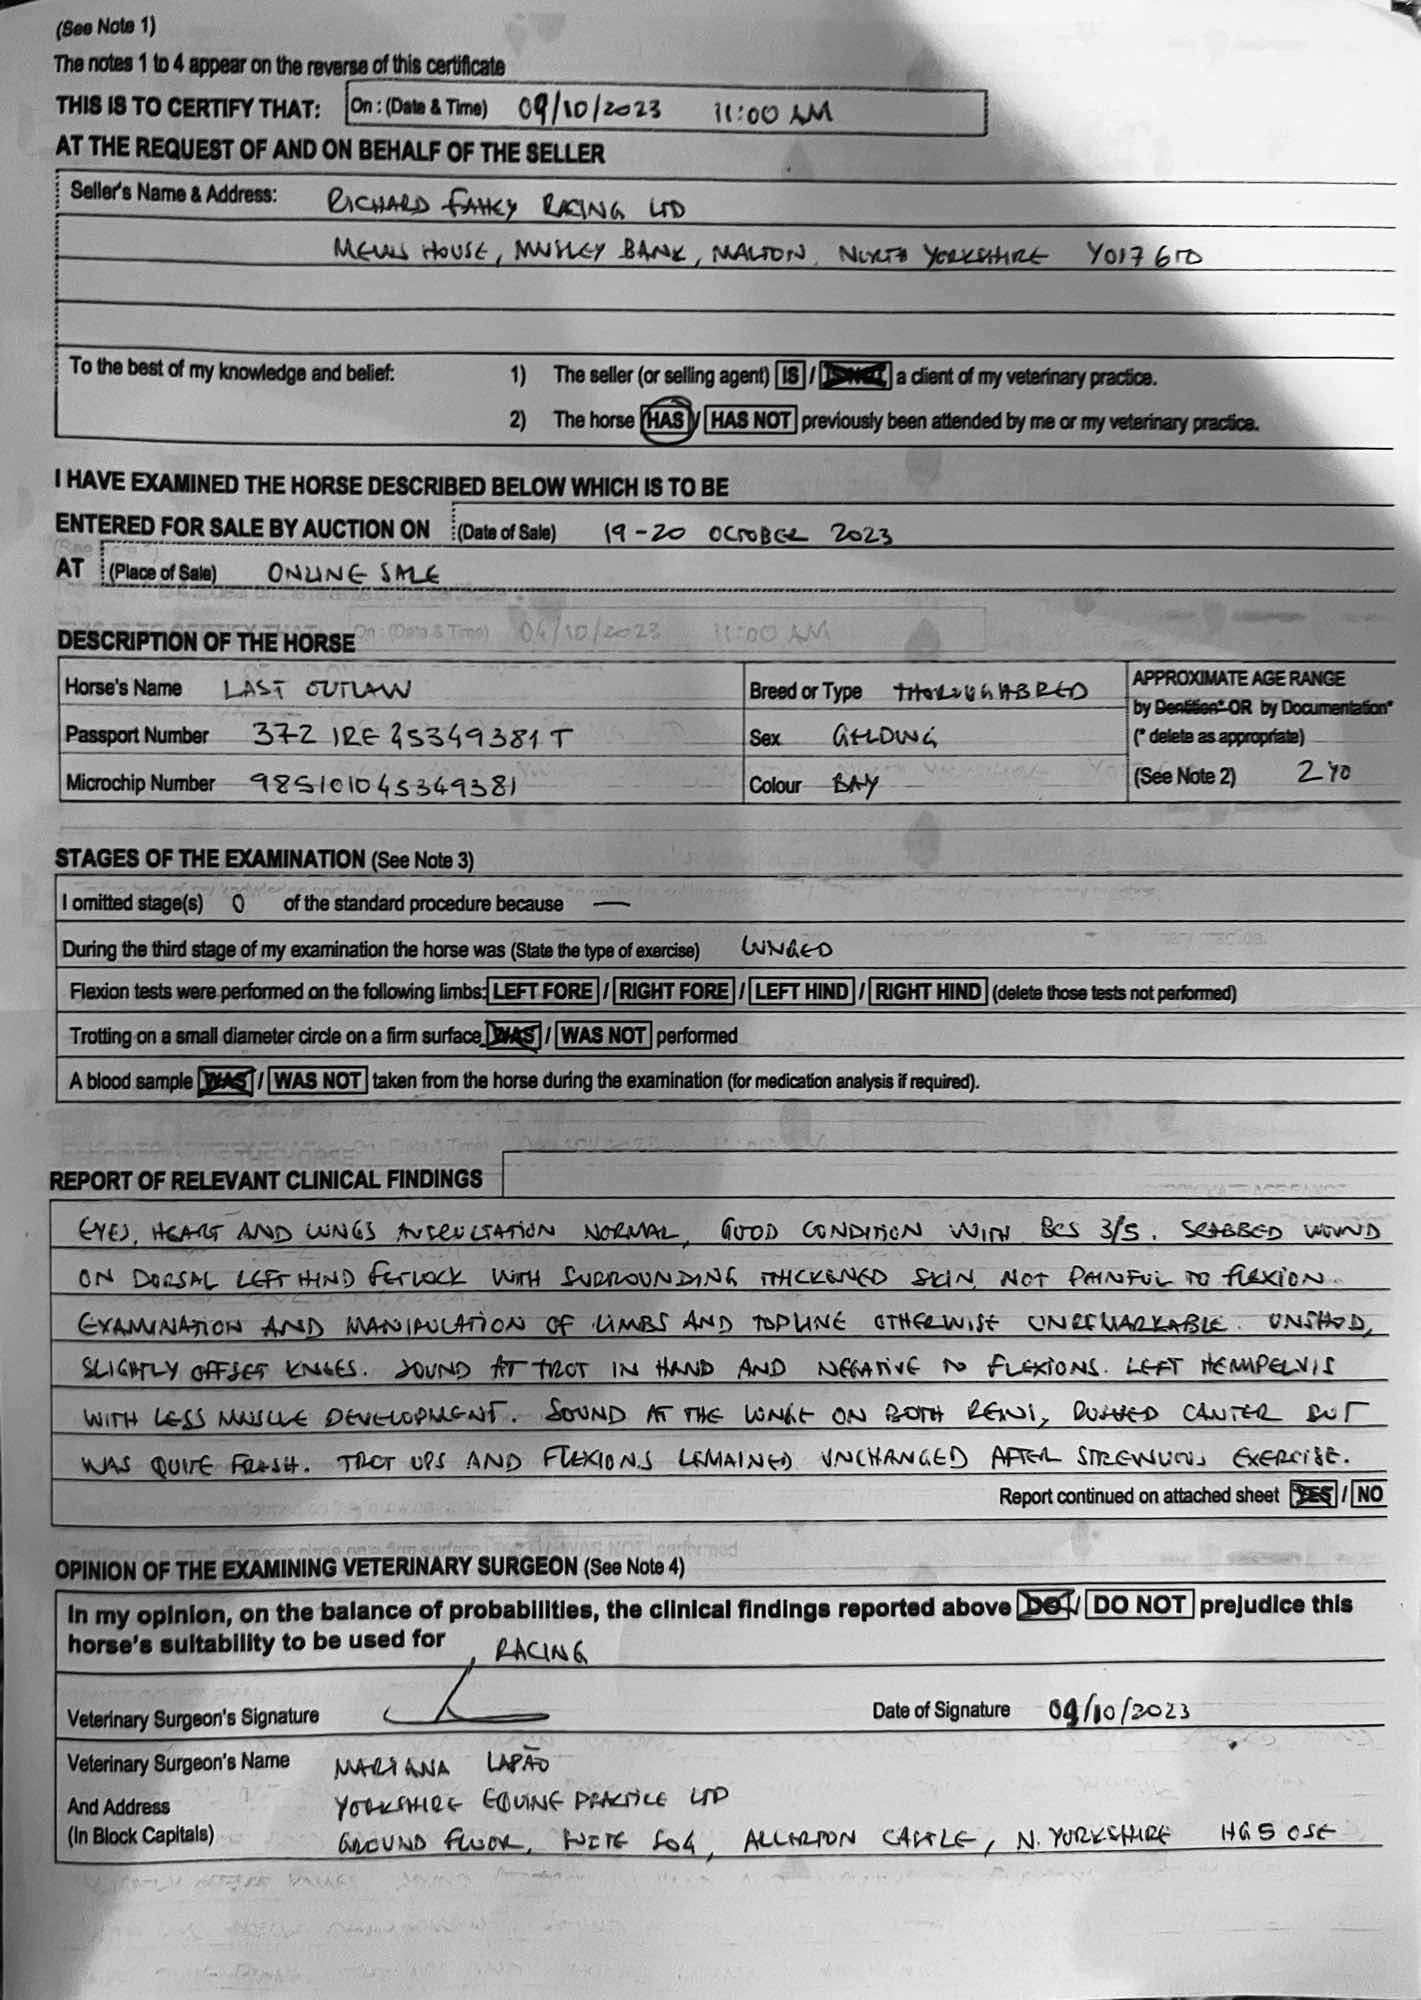 (See Note 1)
The notes 1 to 4 appear on the reverse of this certificate
THIS IS TO CERTIFY THAT: On : (Date & Time) 09/10/2023 11:00 AM
AT THE REQUEST OF AND ON BEHALF OF THE SELLER
Seller's Name & Address: RICHARD FAHEY RACING LTD
MEWS HOUSE, MUSLEY BANK, MALTON, NORTH YORKSHIRE YO17 6TD
To the best of my knowledge and belief: 1) The seller (or selling agent) IS / IS NOT a client of my veterinary practice.
2) The horse HAS / HAS NOT previously been attended by me or my veterinary practice.
I HAVE EXAMINED THE HORSE DESCRIBED BELOW WHICH IS TO BE
ENTERED FOR SALE BY AUCTION ON (Date of Sale) 19-20 OCTOBER 2023
AT (Place of Sale) ONLINE SALE
DESCRIPTION OF THE HORSE
Horse's Name LAST OUTLAW Breed or Type THOROUGHBRED APPROXIMATE AGE RANGE
by Dentition* OR by Documentation*
Passport Number 372 IRE 45349381 T Sex GELDING (* delete as appropriate)
Microchip Number 985101045349381 Colour BAY (See Note 2) 2 YO
STAGES OF THE EXAMINATION (See Note 3)
I omitted stage(s) 0 of the standard procedure because —
During the third stage of my examination the horse was (State the type of exercise) LUNGED
Flexion tests were performed on the following limbs: LEFT FORE / RIGHT FORE / LEFT HIND / RIGHT HIND (delete those tests not performed)
Trotting on a small diameter circle on a firm surface WAS / WAS NOT performed
A blood sample WAS / WAS NOT taken from the horse during the examination (for medication analysis if required).
REPORT OF RELEVANT CLINICAL FINDINGS
EYES, HEART AND LUNGS AUSCULTATION NORMAL, GOOD CONDITION WITH BCS 3/5. SCABBED WOUND
ON DORSAL LEFT HIND FETLOCK WITH SURROUNDING THICKENED SKIN, NOT PAINFUL TO FLEXION.
EXAMINATION AND MANIPULATION OF LIMBS AND TOPLINE OTHERWISE UNREMARKABLE. UNSHOD,
SLIGHTLY OFFSET KNEES. SOUND AT TROT IN HAND AND NEGATIVE TO FLEXIONS. LEFT HEMIPELVIS
WITH LESS MUSCLE DEVELOPMENT. SOUND AT THE LUNGE ON BOTH REINS, RUSHED CANTER BUT
WAS QUITE FRESH. TROT UPS AND FLEXIONS REMAINED UNCHANGED AFTER STRENUOUS EXERCISE.
Report continued on attached sheet YES / NO
OPINION OF THE EXAMINING VETERINARY SURGEON (See Note 4)
In my opinion, on the balance of probabilities, the clinical findings reported above DO / DO NOT prejudice this
horse's suitability to be used for RACING
Veterinary Surgeon's Signature Date of Signature 09/10/2023
Veterinary Surgeon's Name MARIANA LAPÃO
And Address YORKSHIRE EQUINE PRACTICE LTD
(In Block Capitals) GROUND FLOOR, SUITE S04, ALLERTON CASTLE, N. YORKSHIRE HG5 0SE